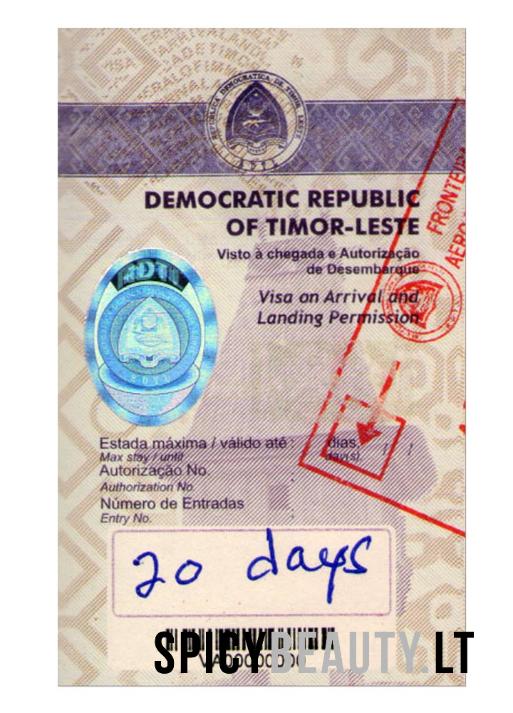 REPÚBLICA DEMOCRÁTICA DE TIMOR LESTE
DEMOCRATIC REPUBLIC
OF TIMOR-LESTE
Visto à chegada e Autorização
de Desembarque
Visa on Arrival and
Landing Permission
RDTL
FRONTEIRA
AERO
Estada máxima / válido até : dias. / /
Max stay / until day(s).
Autorização No.
Authorization No.
Número de Entradas :
Entry No.
20 days
SPICYBEAUTY.LT